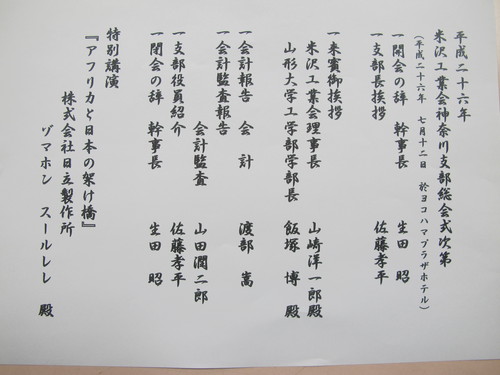 平成二十六年
米沢工業会神奈川支部総会式次第
（平成二十六年 七月十二日 於ヨコハマプラザホテル）
一開会の辞 幹事長 生田 昭
一支部長挨拶 佐藤孝平
一来賓御挨拶
米沢工業会理事長 山崎洋一郎殿
山形大学工学部学部長 飯塚 博 殿
一会計報告 会 計 渡部 嵩
一会計監査報告
会計監査 山田潤二郎
一支部役員紹介 佐藤孝平
一閉会の辞 幹事長 生田 昭
特別講演
『アフリカと日本の架け橋』
株式会社日立製作所
ゾマホン スールレレ 殿